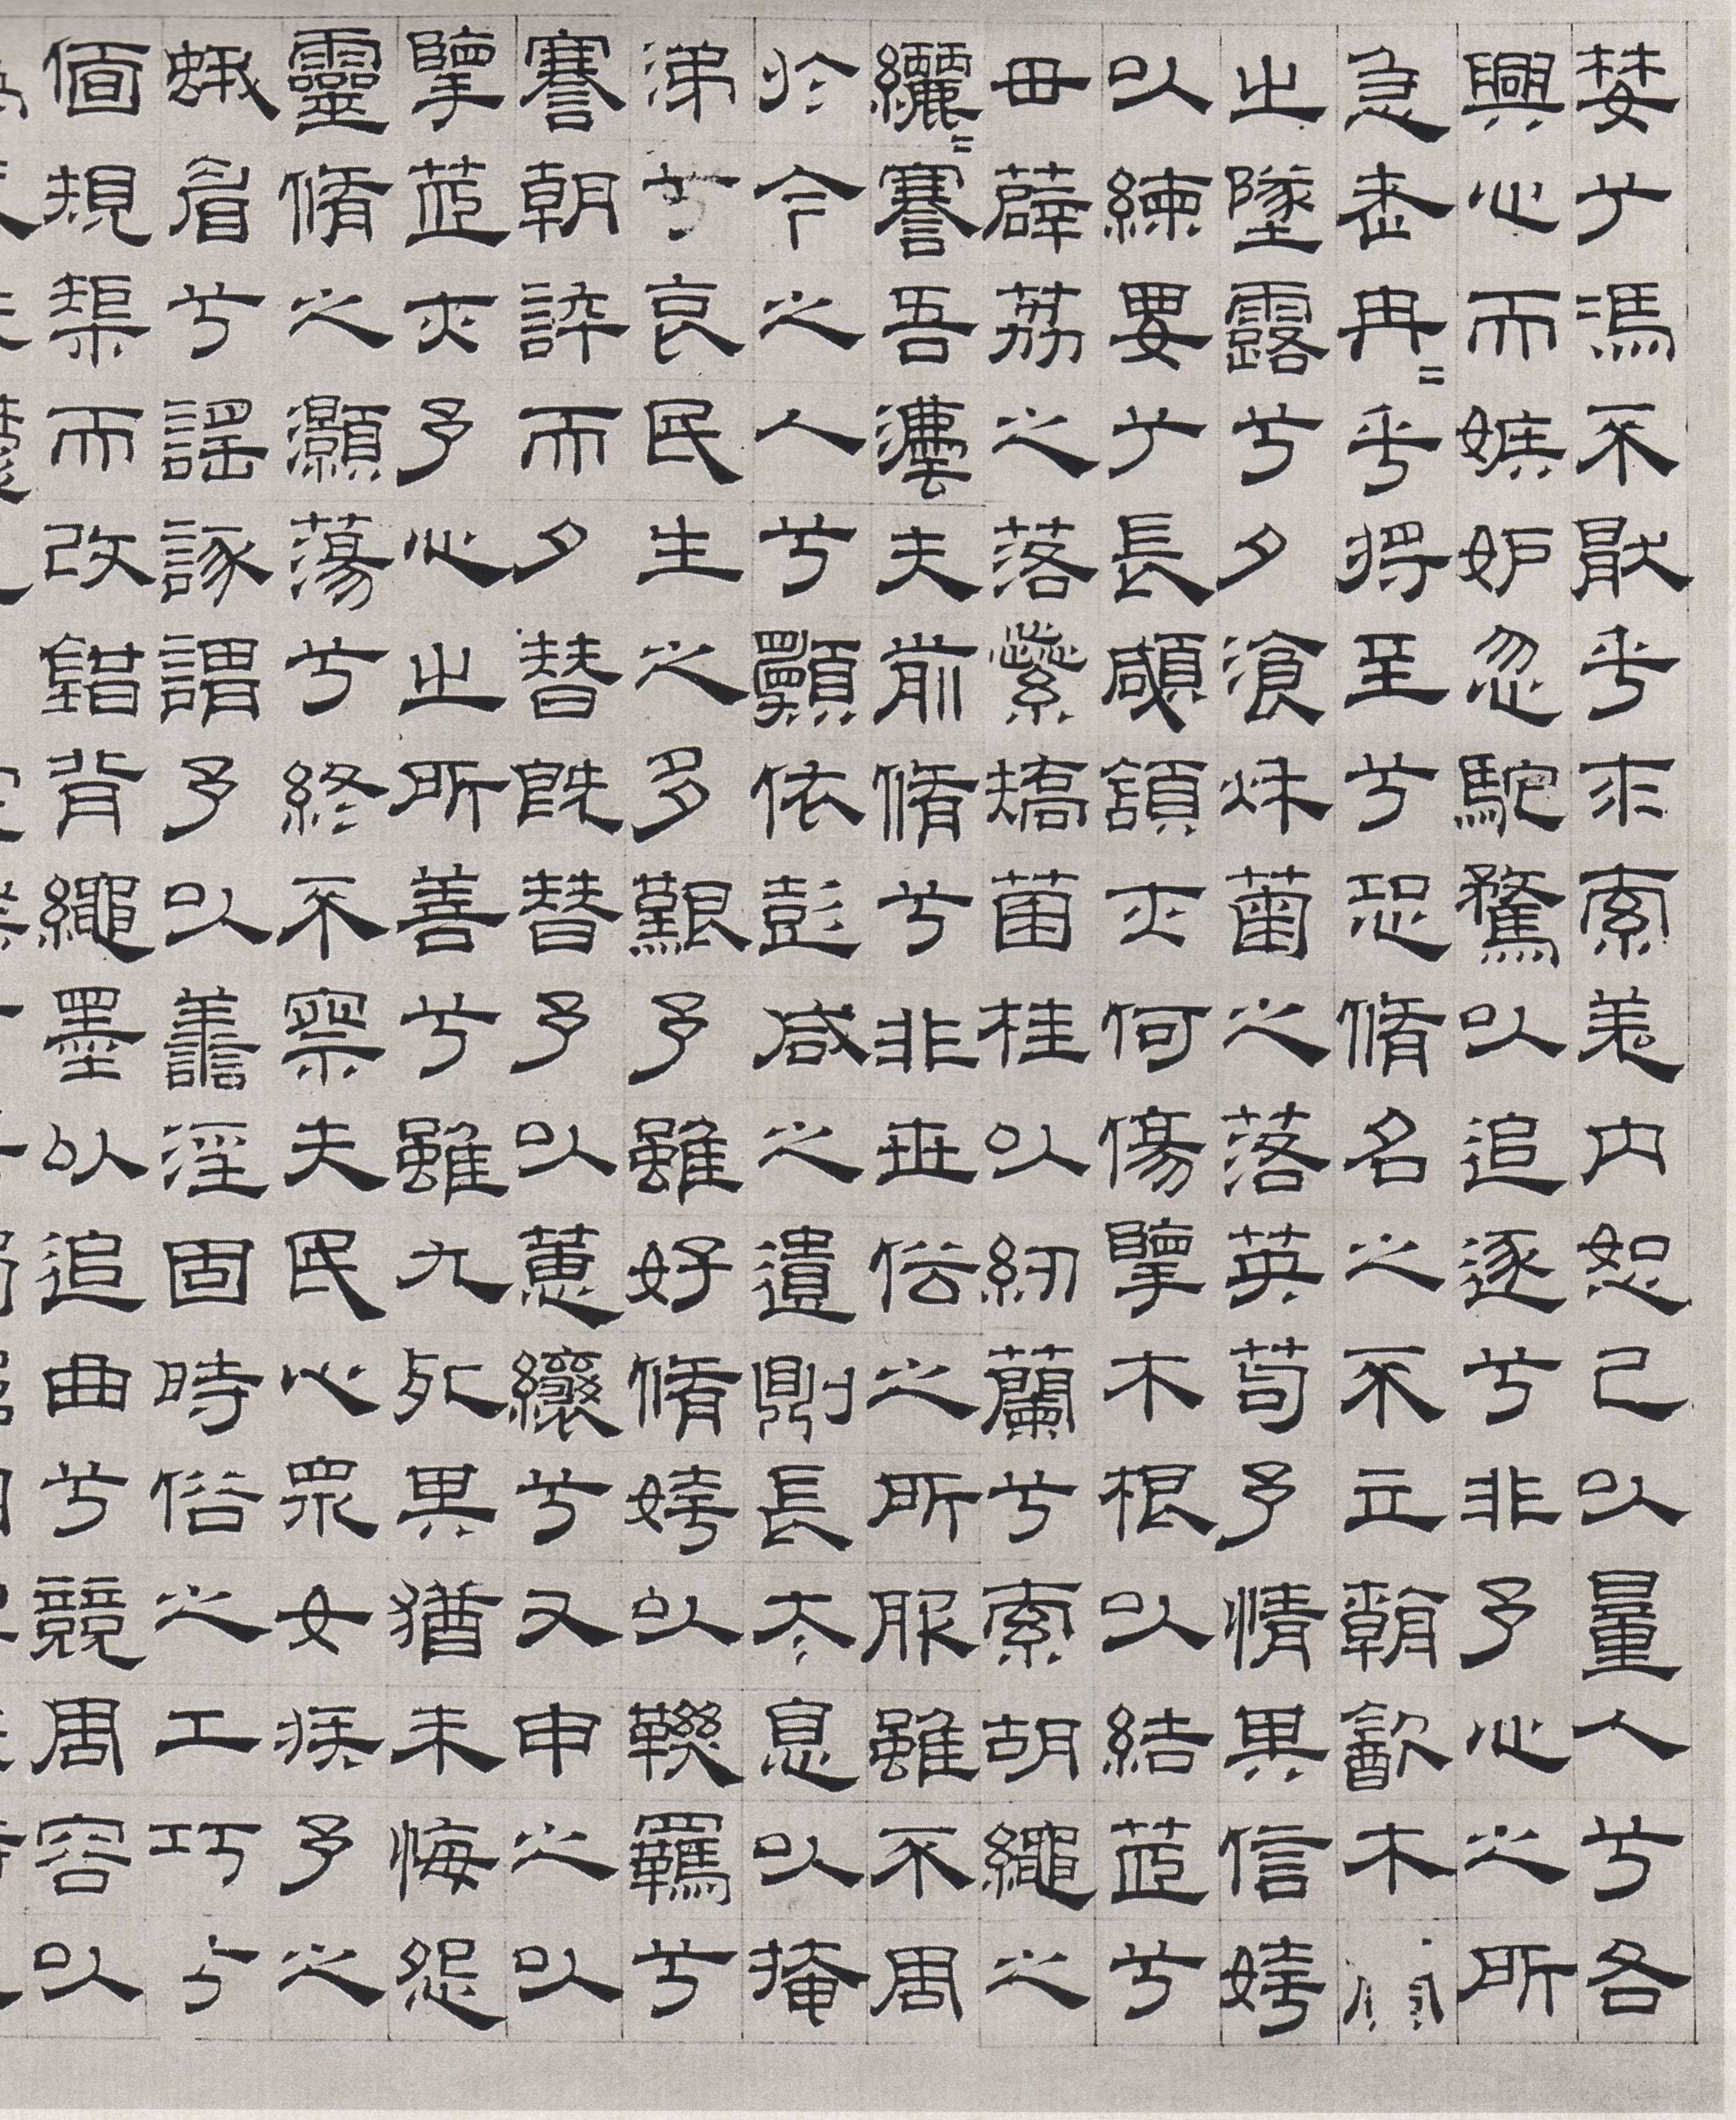 婪兮馮不猒乎求索羌內恕己以量人兮各
興心而嫉妒忽馳騖以追逐兮非予心之所
急老冉=乎將至兮恐脩名之不立朝飲木蘭
之墜露兮夕湌秋菊之落英苟予情其信姱
以練要兮長顑頷亦何傷擥木根以結茝兮
毌薜荔之落蕊矯菌桂以紉蘭兮索胡繩之
纚=謇吾法夫前脩兮非世俗之所服雖不周
於今之人兮願依彭咸之遺則長太息以掩
涕兮哀民生之多艱予雖好脩姱以鞿羈兮
謇朝誶而夕替既替予以蕙纕兮又申之以
擥茝亦予心之所善兮雖九死其猶未悔怨
靈脩之灝蕩兮終不察夫民心眾女疾予之
蛾眉兮謠諑謂予以善淫固時俗之工巧兮
偭規榘而改錯背繩墨以追曲兮競周容以